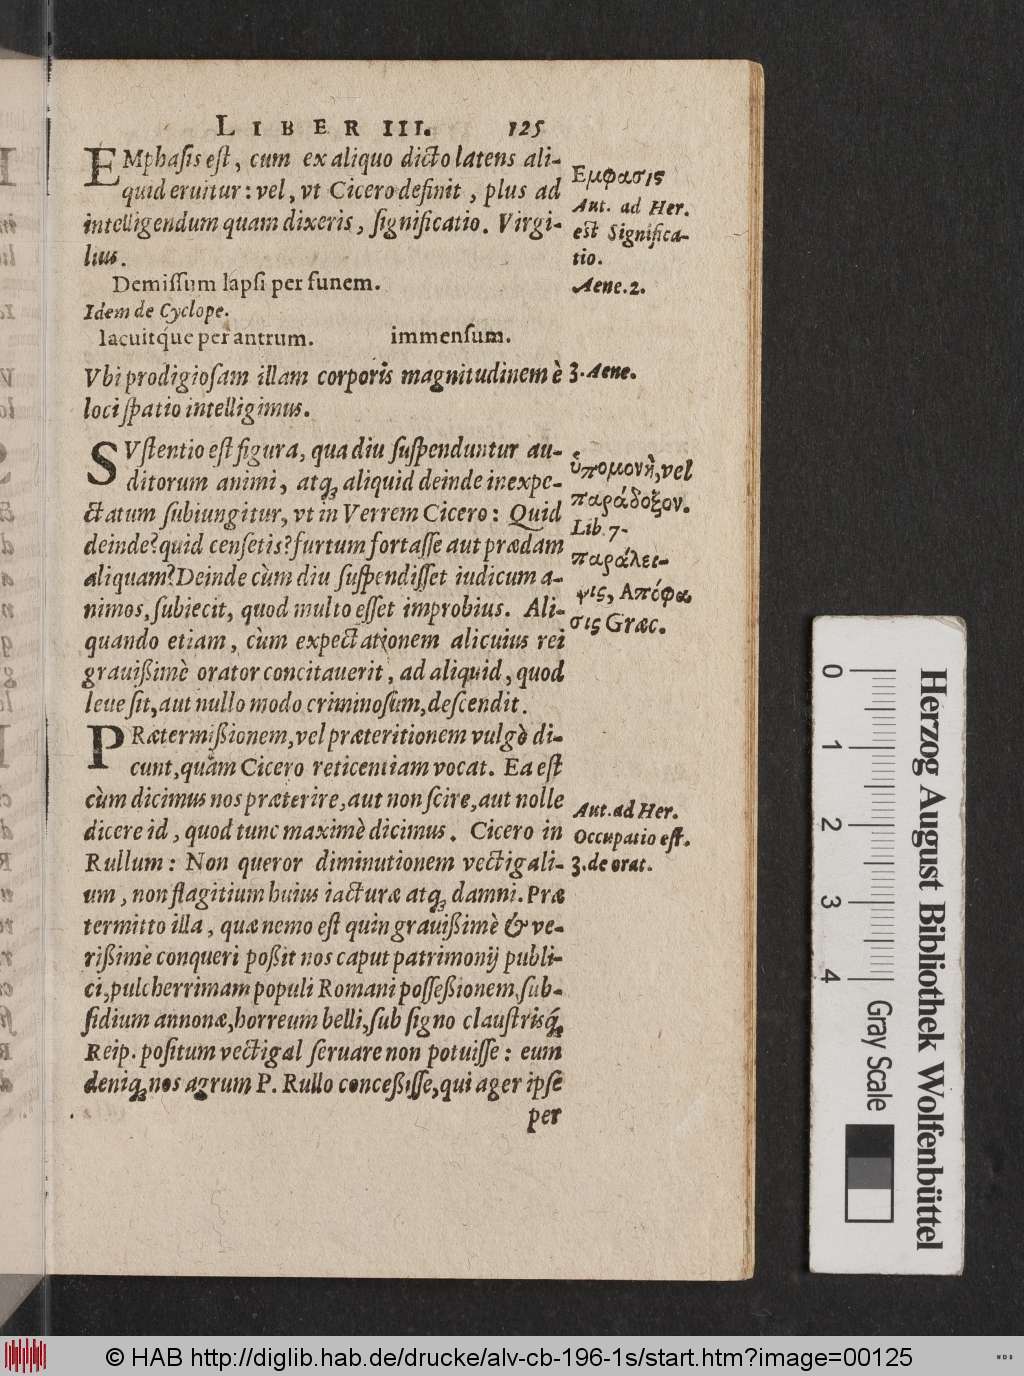 LIBER III. 125
EMphasis est, cum ex aliquo dicto latens ali-
quid eruitur: vel, vt Cicero definit, plus ad
intelligendum quam dixeris, significatio. Virgi-
lius.
Demissum lapsi per funem.
Idem de Cyclope.
Iacuitq́ue per antrum. immensum.
Vbi prodigiosam illam corporis magnitudinem è
loci spatio intelligimus.
SVstentio est figura, qua diu suspenduntur au-
ditorum animi, atq; aliquid deinde inexpe-
ctatum subiungitur, vt in Verrem Cicero: Quid
deinde? quid censetis? furtum fortasse aut prædam
aliquam? Deinde cùm diu suspendisset iudicum a-
nimos, subiecit, quod multo esset improbius. Ali-
quando etiam, cùm expectationem alicuius rei
grauißimè orator concitauerit, ad aliquid, quod
leue sit, aut nullo modo criminosum, descendit.
PRætermißionem, vel præteritionem vulgò di-
cunt, quam Cicero reticentiam vocat. Ea est
cùm dicimus nos præterire, aut non scire, aut nolle
dicere id, quod tunc maximè dicimus. Cicero in
Rullum: Non queror diminutionem vectigali-
um, non flagitium huius iacturæ atq; damni. Præ
termitto illa, quæ nemo est quin grauißimè & ve-
rißimè conqueri poßit nos caput patrimonij publi-
ci, pulcherrimam populi Romani posseßionem, sub-
sidium annonæ, horreum belli, sub signo claustrisq́;
Reip. positum vectigal seruare non potuisse: eum
deniq; nos agrum P. Rullo conceßisse, qui ager ipse
per
Εμφασις
Aut. ad Her.
est Significa-
tio.
Aene. 2.
3. Aene.
ὑπομονὴ, vel
παράδοξον.
Lib. 7.
παράλει-
ψις, Απόφα
σις Græc.
Aut. ad Her.
Occupatio est.
3. de orat.
0 1 2 3 4
Gray Scale
Herzog August Bibliothek Wolfenbüttel
© HAB http://diglib.hab.de/drucke/alv-cb-196-1s/start.htm?image=00125